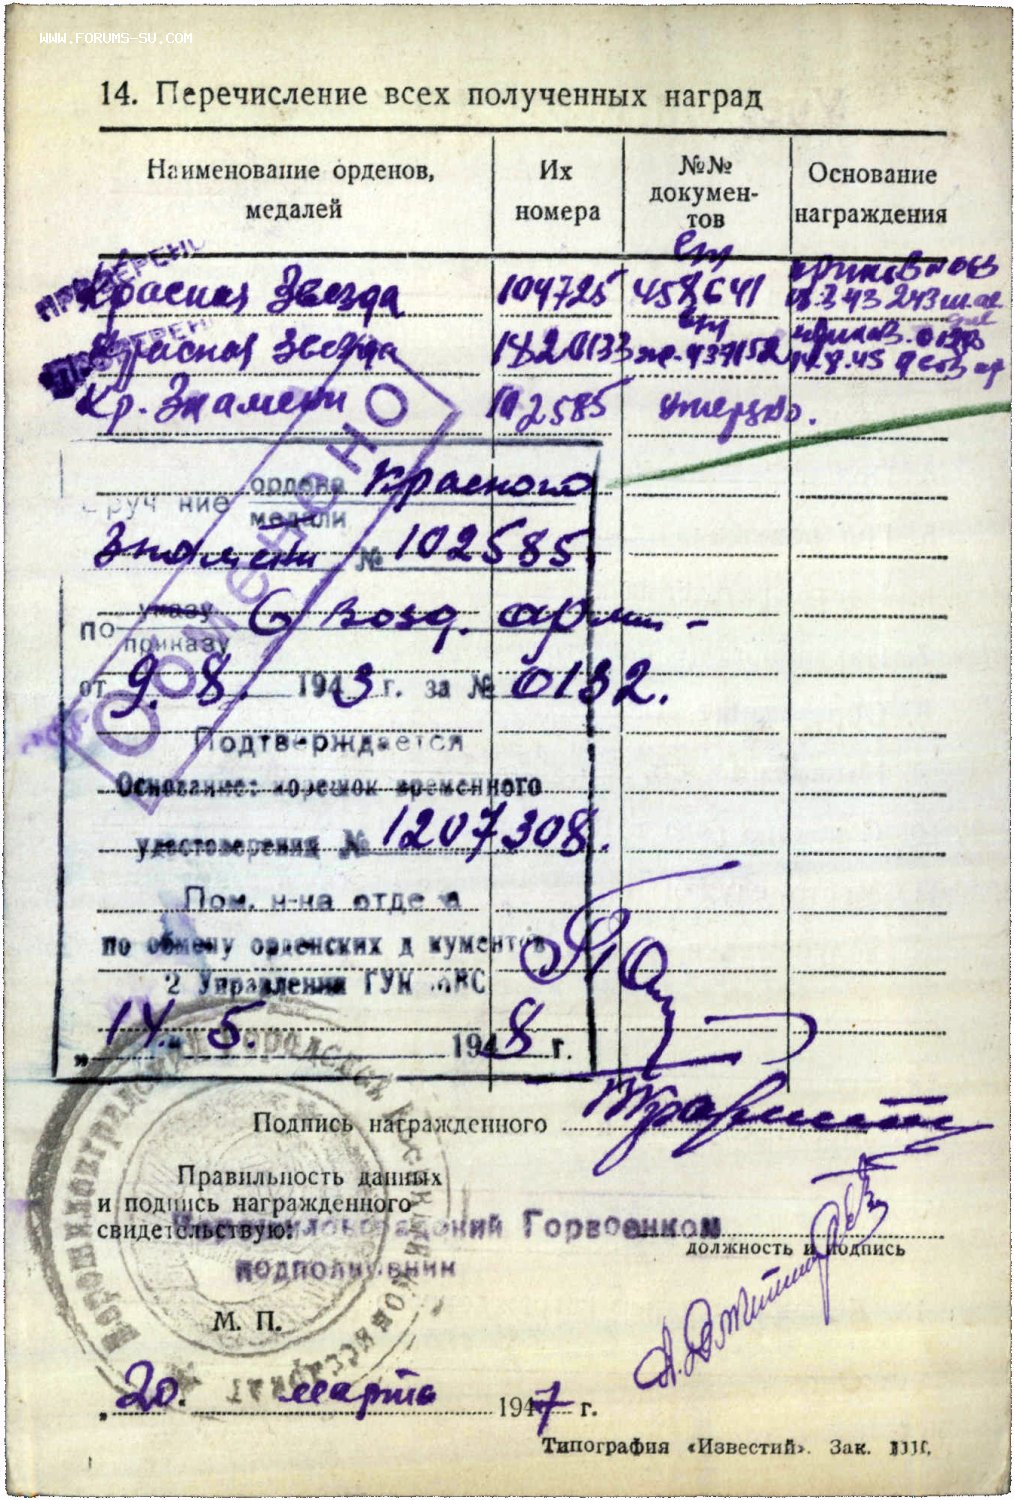 WWW.FORUMS-SU.COM
14. Перечисление всех полученных наград
Наименование орденов, медалей
Их номера
№№ документов
Основание награждения
ПРОВЕРЕНО
Красная Звезда 104725 458641 18.3.43 243
Красная Звезда 1820133 937152 приказ. 14.8.45
Кр. Знамени 102585 утеряно.
ОБМЕНЕНО
ордена Красного
медали
Знамени № 102585.
по указу 6 возд. арми -
приказу
от 9. 8. 1943 г. за № 0132.
Подтверждается
Основание: корешок временного
удостоверения № 1207308.
Пом. н-ка отдела
по обмену орденских документов
2 Управления ГУК МВС
14. 5. 1948 г.
Подпись награжденного
Правильность данных
и подпись награжденного
свидетельствую:
Ворошиловградский Горвоенком
подполковник
должность и подпись
М. П.
„ 20. марта 1947 г.
Типография «Известий». Зак.